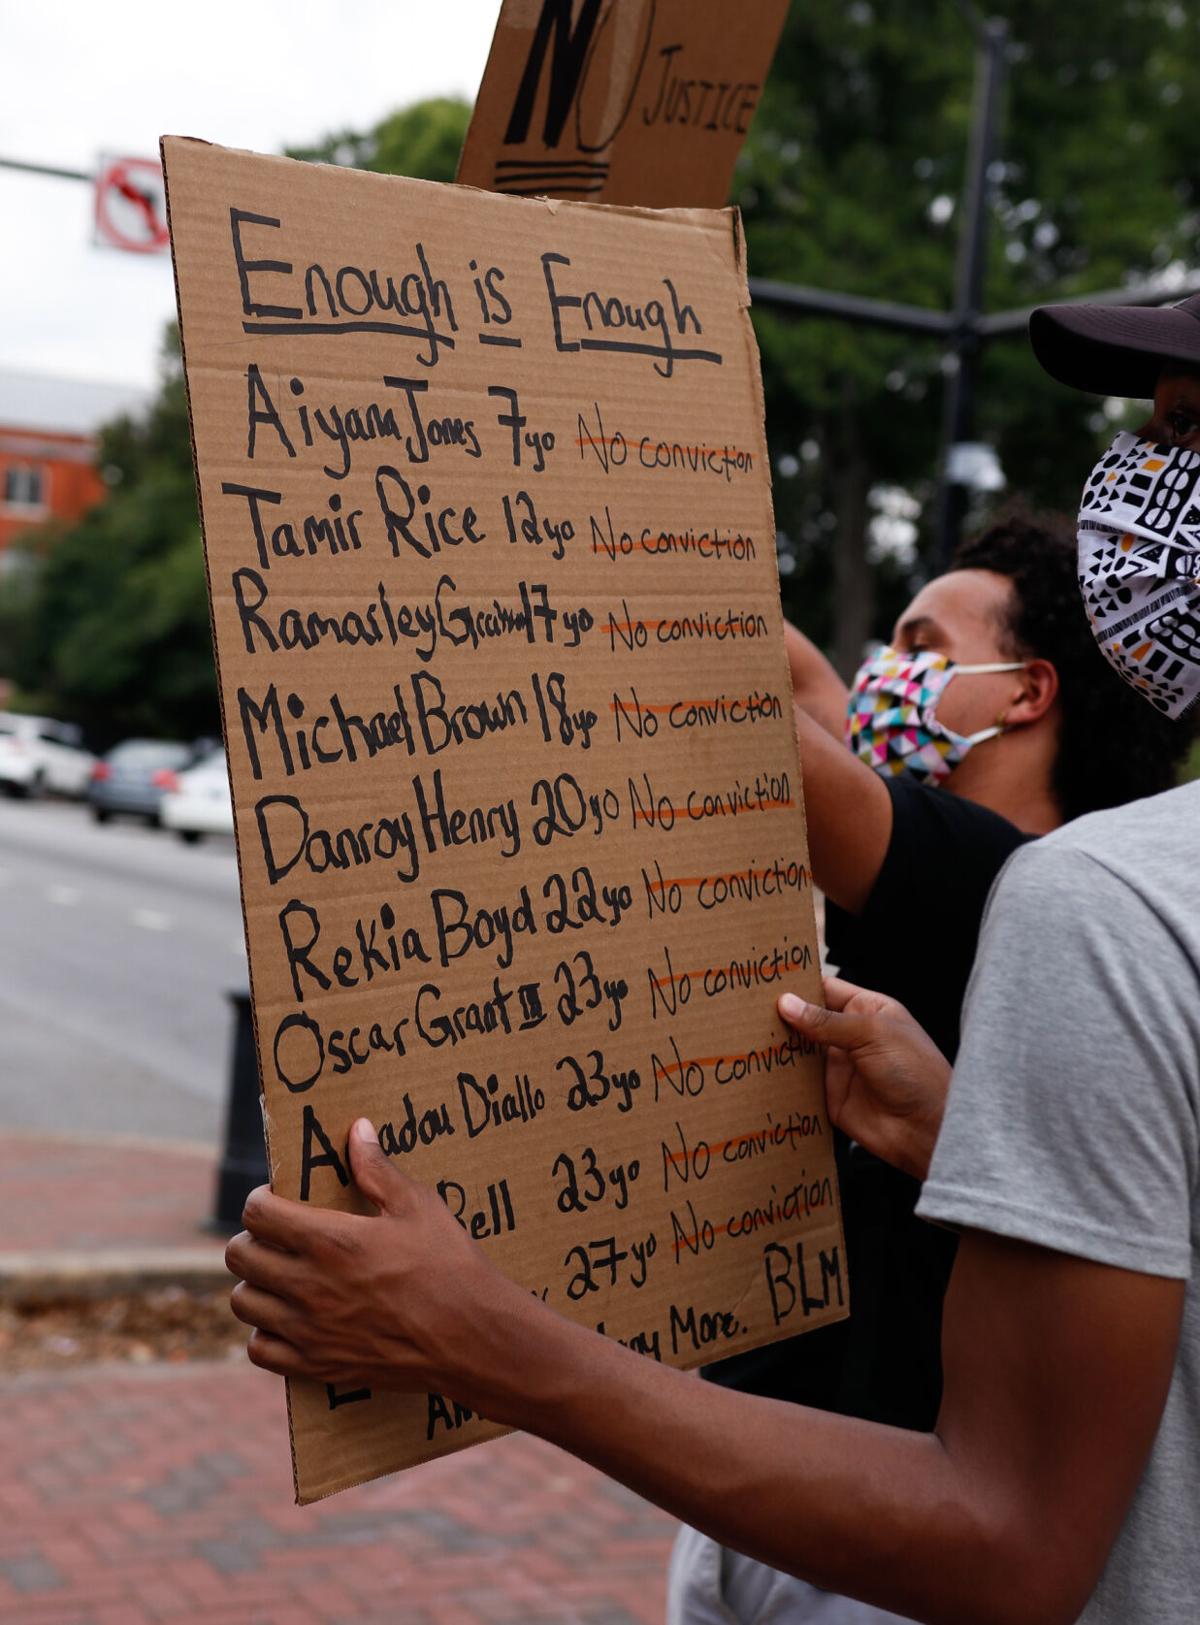 NO
JUSTICE
Enough is Enough
Aiyana Jones 7yo No conviction
Tamir Rice 12yo No conviction
Ramarley Graham 17yo No conviction
Michael Brown 18yo No conviction
Danroy Henry 20yo No conviction
Rekia Boyd 22yo No conviction
Oscar Grant III 23yo No conviction
A adou Diallo 23yo No conviction
Bell 23yo No conviction
27yo No conviction
More. BLM